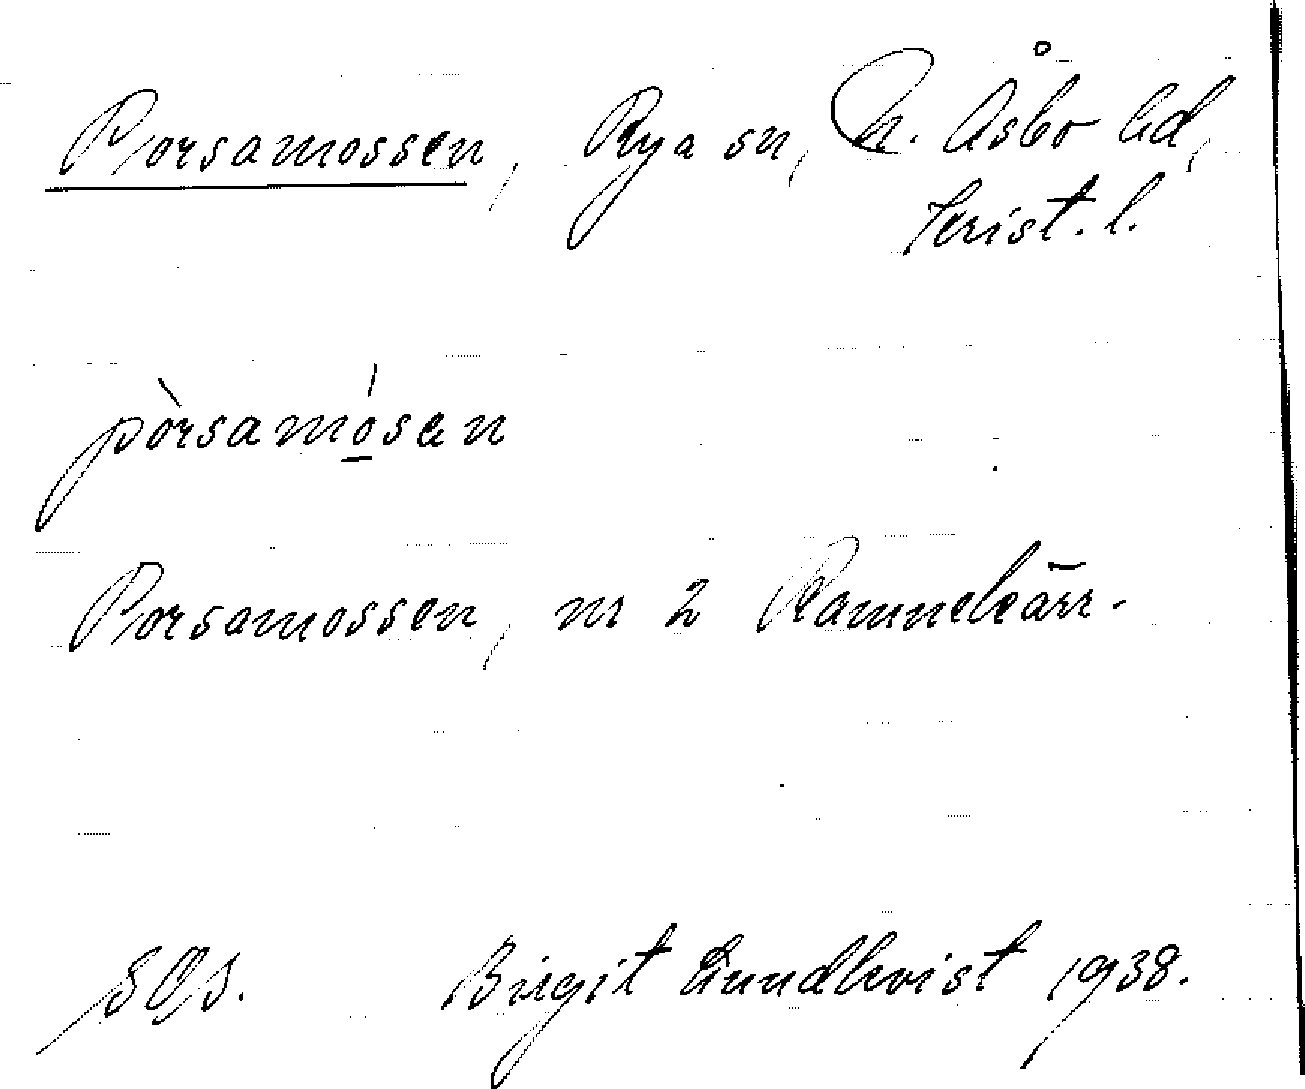 Porsamossen, Rya sn, N. Åsbo hd,
Krist. l.
pòrsamósen
Porsamossen, nr 2 Ramnekärr.
SOS. Birgit Lundkvist 1938.